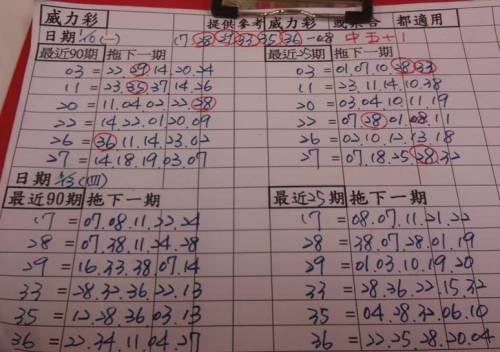 威力彩 提供參考 威力彩 或集合 都適用
日期 (一) 17 28 29 33 35 36 -08 中五+1
最近90期 拖下一期 最近25期 拖下一期
03 = 22.29.14.20.24 03 = 01.07.10.28.33
11 = 23.35.37.14.26 11 = 23.11.14.10.38
20 = 11.04.02.22.28 20 = 03.04.10.11.19
22 = 14.22.01.20.09 22 = 07.28.01.08.11
26 = 36.11.14.23.02 26 = 02.10.12.13.18
27 = 14.18.19.03.07 27 = 07.18.25.28.32
日期 (四)
最近90期 拖下一期 最近25期 拖下一期
17 = 07.08.11.22.24 17 = 08.07.11.21.22
28 = 07.38.11.24.28 28 = 38.07.28.01.19
29 = 16.33.38.07.14 29 = 01.03.10.19.20
33 = 28.32.36.22.13 33 = 28.36.22.15.32
35 = 12.28.36.03.13 35 = 04.28.32.06.10
36 = 22.34.11.04.27 36 = 22.25.28.20.04